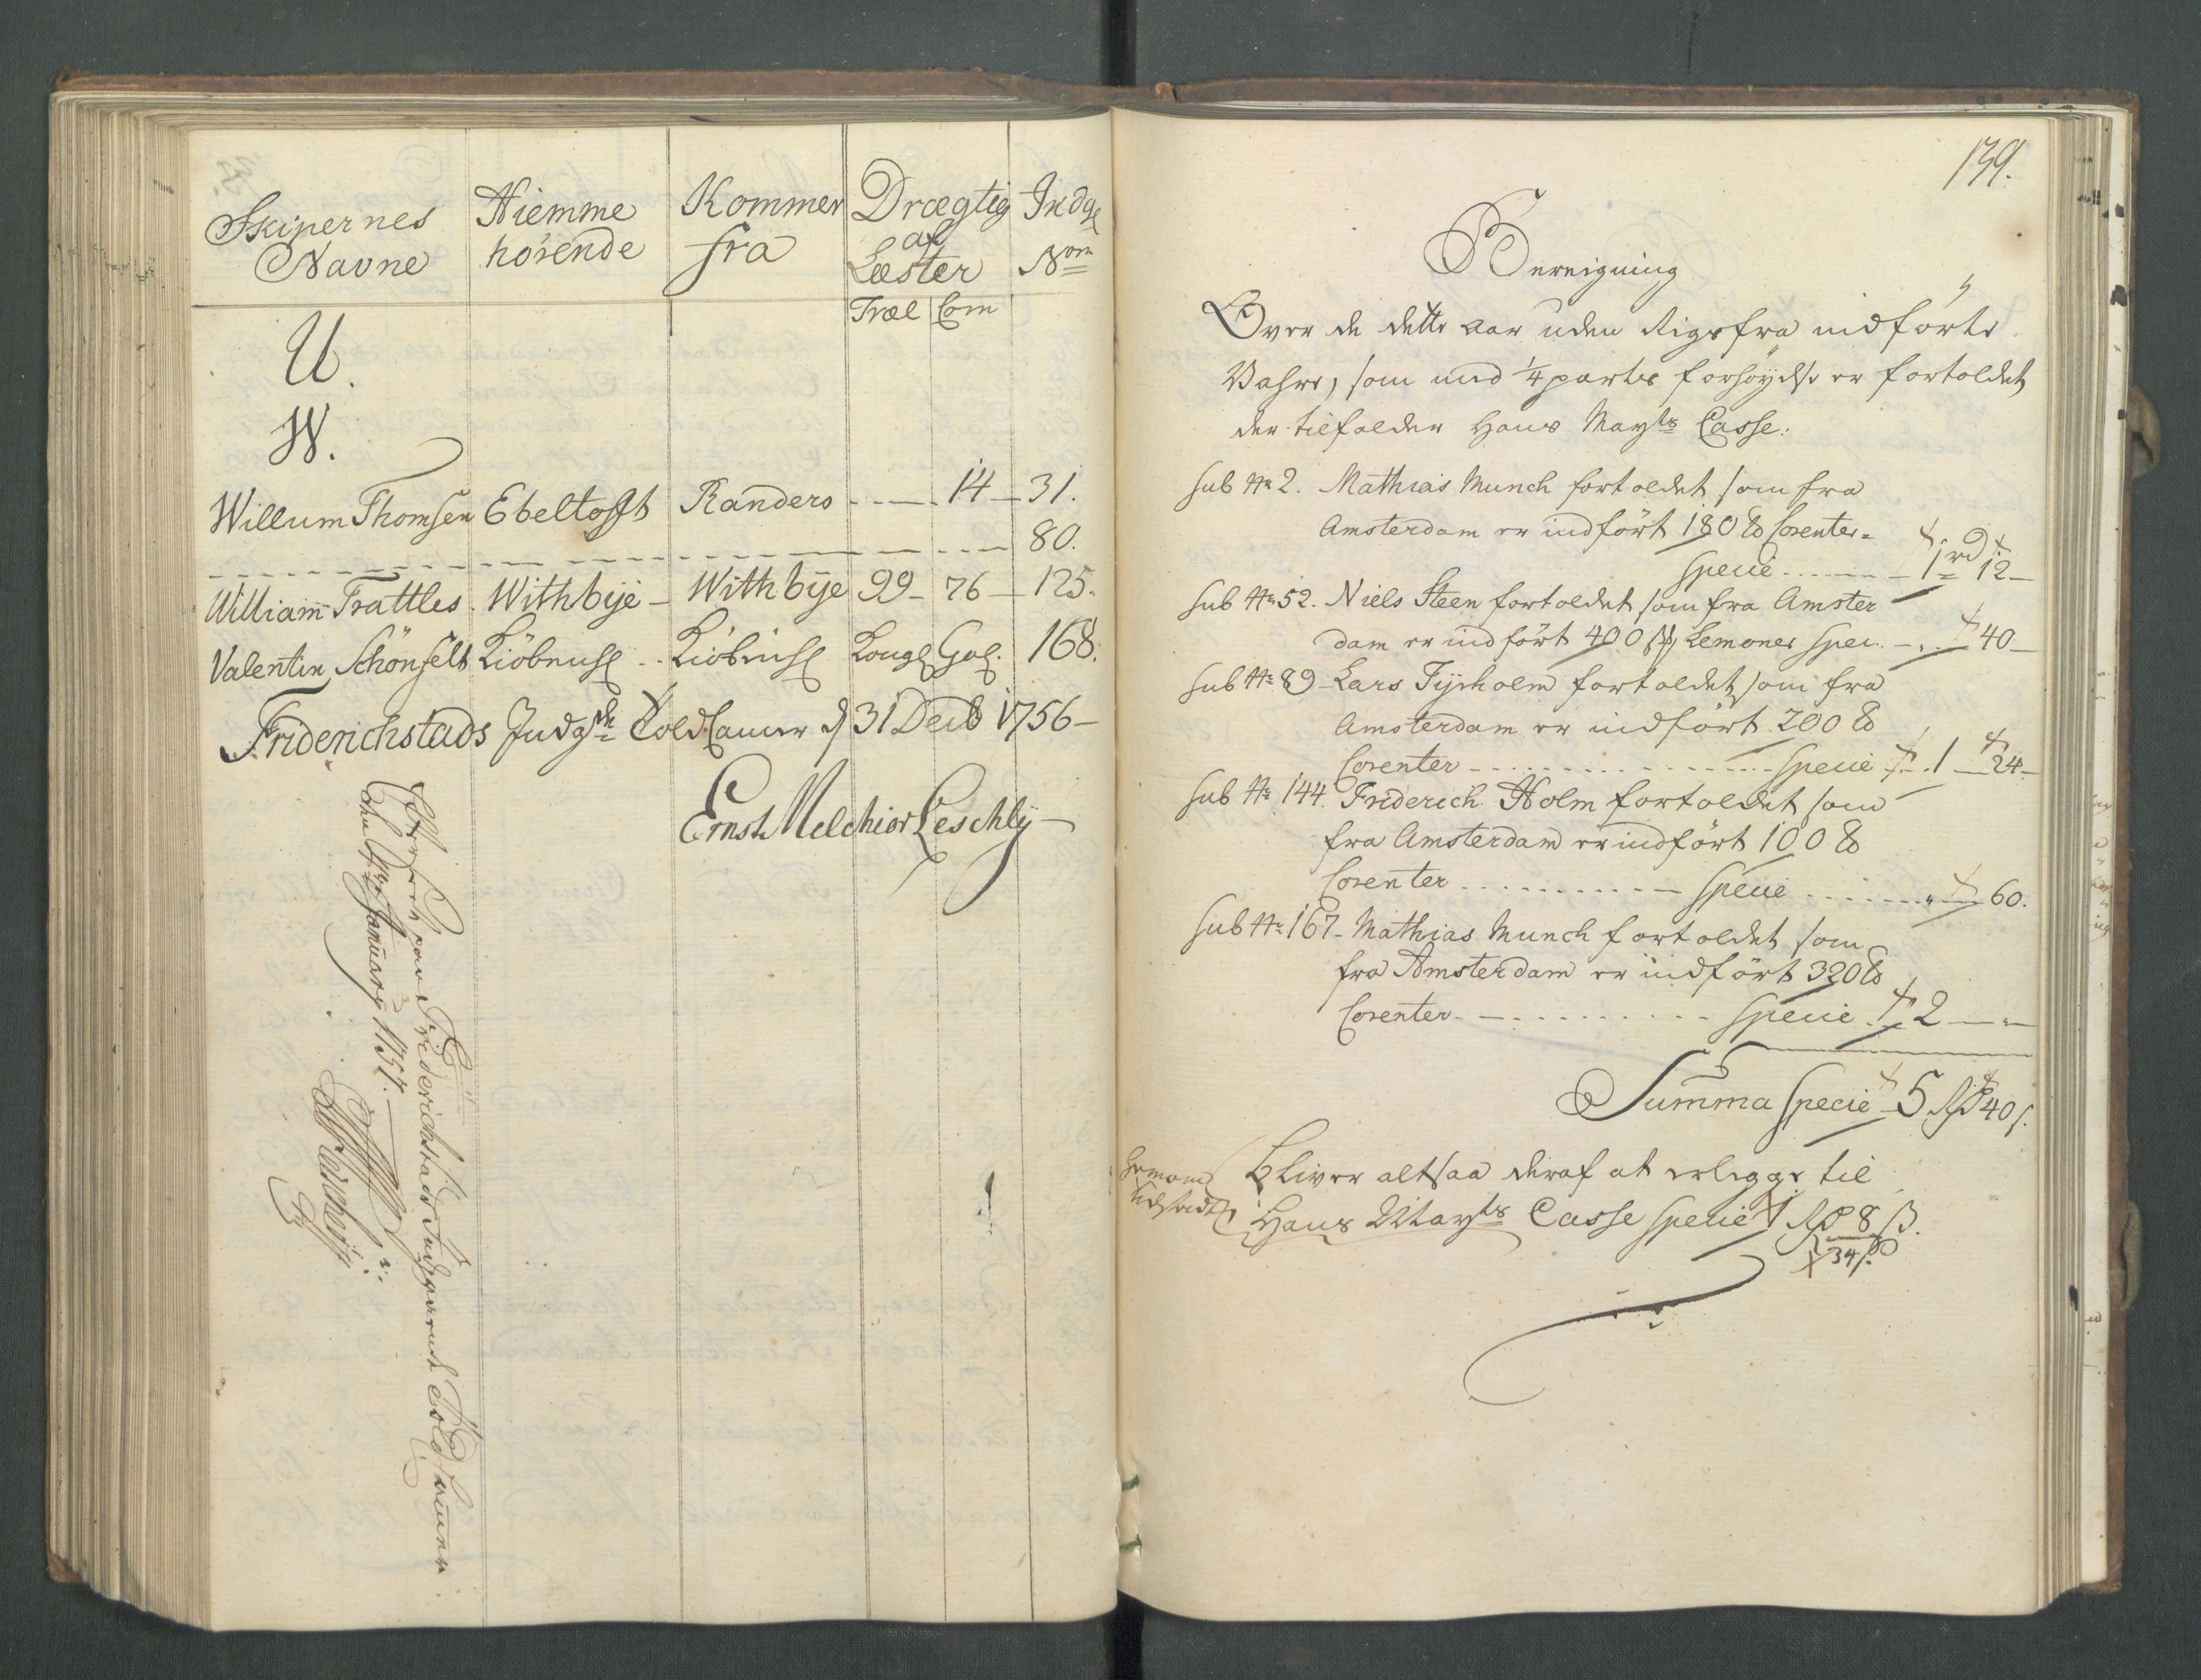 Skipernes Navne | Hiemme hörende | Kommer fra | Drægtig af Læster | Indg Nom
Træl | Com
U.
W.
Willum Thomsen | Ebeltoft | Randers | 14 | 31.
80.
William Trattles | Withbÿe | Withbÿe | 99 | 76 | 125.
Valentin Schönfelt | Kiöbenh | Kiöbenh | Kongl Gal. | 168.
Friderichstads Indg Told Camer d 31 Decb 1756
Ernst Melchior Leschlÿ
Friderichstads Indgaaende Told Camer
Januarÿ 1757.
139.
Bereigning
Over de dette aar uden Rigs fra indförte
Vahre, som med 1/4 parts forhöÿelse er fortoldet
der tilfalder Hans Mayts Casse:
Sub No 2. Mathias Munch fortoldet som fra
Amsterdam er indfört 180 lb Corenter
Specie 1 rd 12
Sub No 52. Niels Steen fortoldet som fra Amster
dam er indfört 400 st Lemoner Speci 40
Sub No 89 Lars Tÿsholm fortoldet som fra
Amsterdam er indfört 200 lb
Corenter Specie 1 24
Sub No 144. Friderich Holm fortoldet som
fra Amsterdam er indfört 100 lb
Corenter Specie 60.
Sub No 167 Mathias Munch fortoldet som
fra Amsterdam er indfört 320 lb
Corenter Specie 2
Summa Specie 5 Rd 40 s.
Bliver altsaa deraf at erlegge til
Hans Mayts Casse Specie 1 Rd 8 s.
34 s.